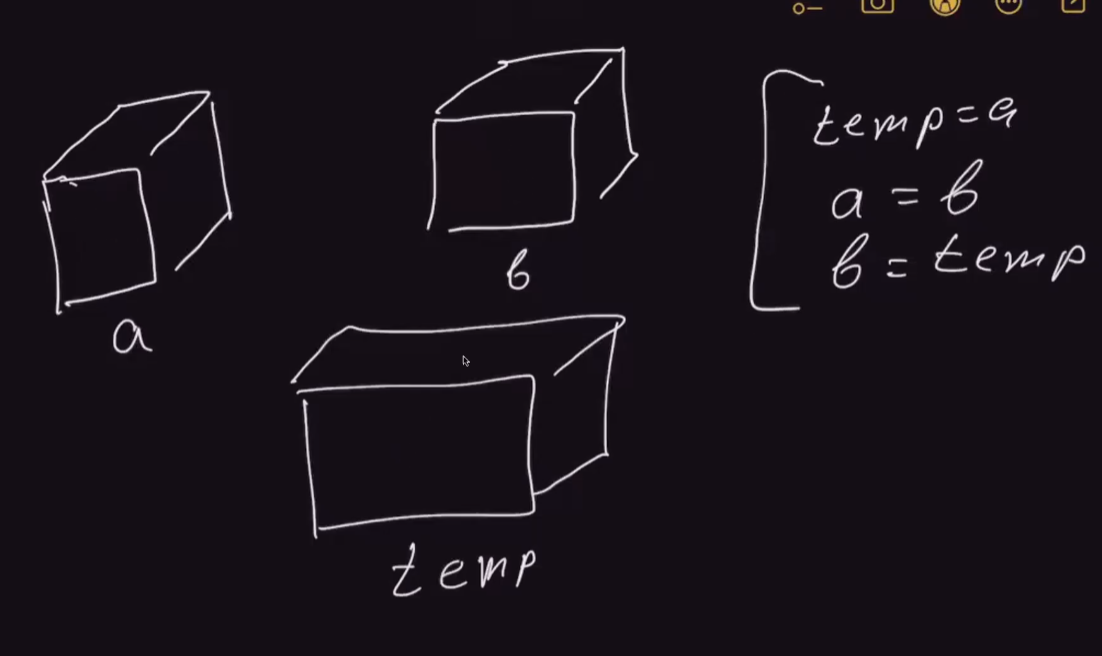 a
b
temp
temp=a
a = b
b = temp